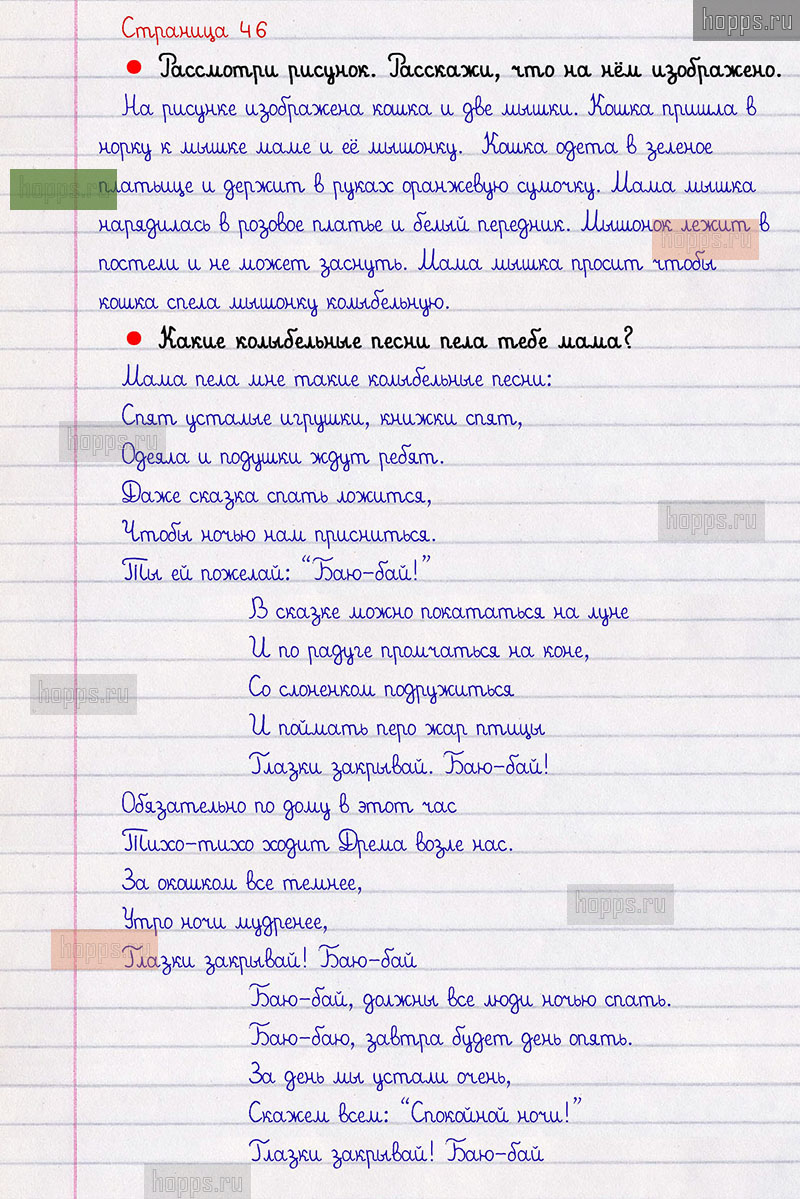 hopps.ru
Страница 46
Рассмотри рисунок. Расскажи, что на нём изображено.
На рисунке изображена кошка и две мышки. Кошка пришла в
норку к мышке маме и её мышонку. Кошка одета в зеленое
hopps.ru
платьице и держит в руках оранжевую сумочку. Мама мышка
нарядилась в розовое платье и белый передник. Мышонок лежит в
hopps.ru
постели и не может заснуть. Мама мышка просит чтобы
кошка спела мышонку колыбельную.
Какие колыбельные песни пела тебе мама?
Мама пела мне такие колыбельные песни:
Спят усталые игрушки, книжки спят,
hopps.ru
Одеяла и подушки ждут ребят.
Даже сказка спать ложится,
hopps.ru
Чтобы ночью нам присниться.
Ты ей пожелай: “Баю-бай!”
В сказке можно покататься на луне
И по радуге промчаться на коне,
hopps.ru
Со слоненком подружиться
И поймать перо жар птицы
Глазки закрывай. Баю-бай!
Обязательно по дому в этот час
Тихо-тихо ходит Дрема возле нас.
За окошком все темнее,
hopps.ru
Утро ночи мудренее,
hopps.ru
Глазки закрывай! Баю-бай
Баю-бай, должны все люди ночью спать.
Баю-баю, завтра будет день опять.
За день мы устали очень,
Скажем всем: “Спокойной ночи!”
Глазки закрывай! Баю-бай
hopps.ru